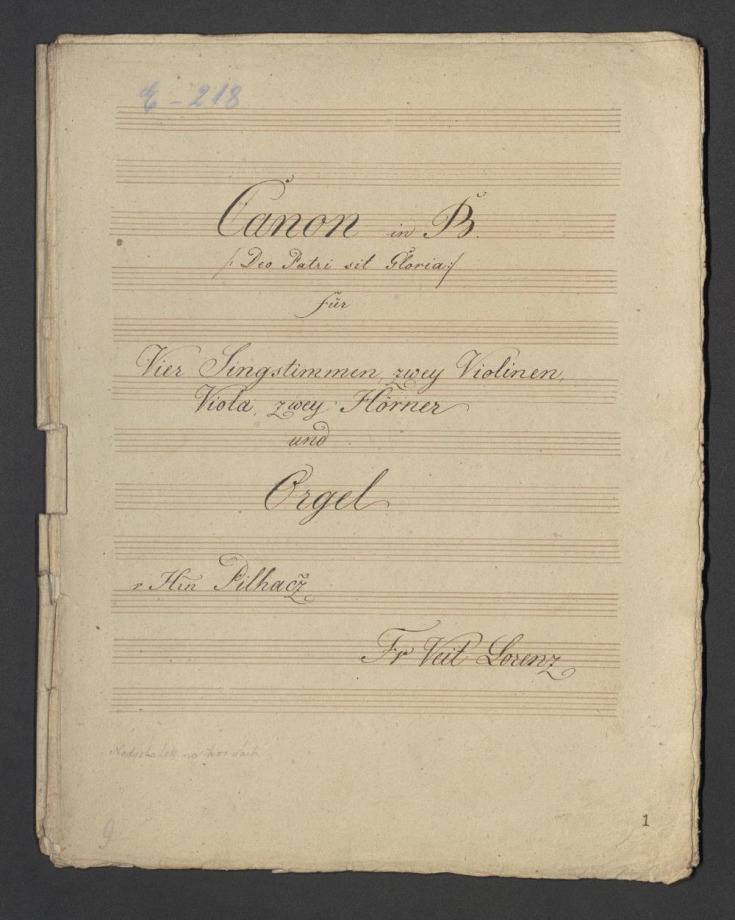 E-218
Canon in B.
/: Deo Patri sit Gloria :/
für
Vier Singstimmen, zwey Violinen,
Viola, zwey Hörner
und
Orgel
v Hrn Pilhacž
Fr Veit Lorenz
9
1